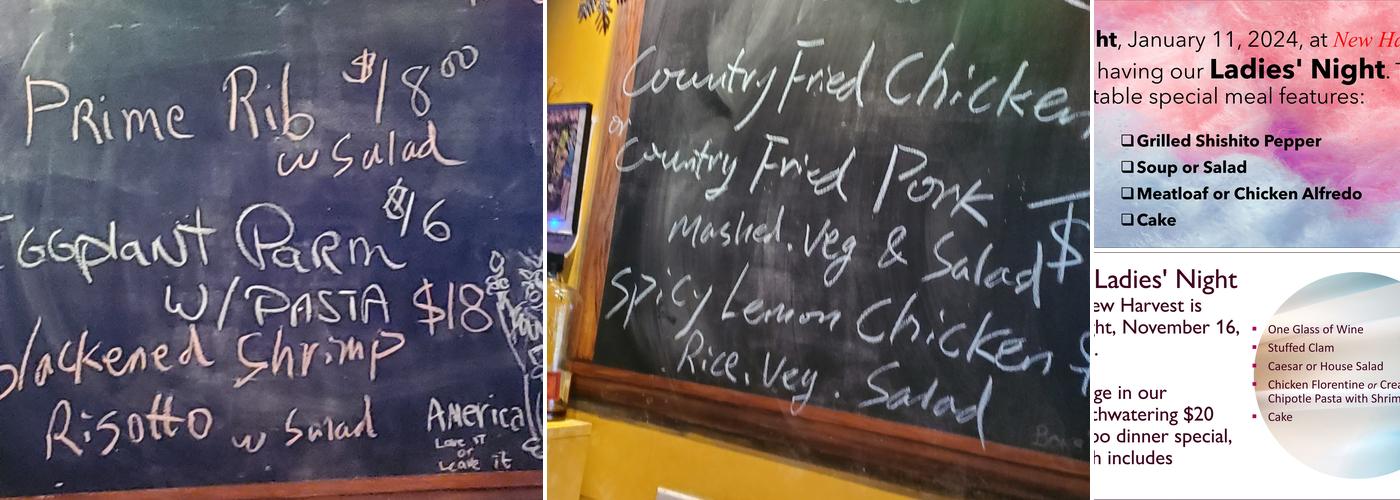 Prime Rib $18.00
w Salad
$16
Eggplant Parm
w/ PASTA $18
blackened Shrimp
Risotto w Salad
America
Love it
or
Leave it
Country Fried Chicken
or
Country Fried Pork
Mashed, Veg & Salad $
Spicy Lemon Chicken $
Rice, Veg. Salad
ht, January 11, 2024, at New Ha
having our Ladies' Night. T
table special meal features:
❑ Grilled Shishito Pepper
❑ Soup or Salad
❑ Meatloaf or Chicken Alfredo
❑ Cake
Ladies' Night
ew Harvest is
ht, November 16,
.
ge in our
chwatering $20
oo dinner special,
h includes
▪ One Glass of Wine
▪ Stuffed Clam
▪ Caesar or House Salad
▪ Chicken Florentine or Crea
Chipotle Pasta with Shrim
▪ Cake